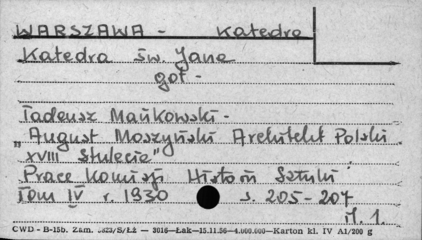 WARSZAWA - Katedra
Katedra św. Jana
got -
Tadeusz Mańkowski -
"August Moszyński Architekt Polski
XVIII Stulecia"
Prace Komisji Historii Sztuki
Tom IV r. 1930 s. 205-207
il. 1.
CWD - B-15b. Zam. 5823/S/Łż — 3016—Łak—15.11.56—4.000.000—Karton kl. IV A1/200 g